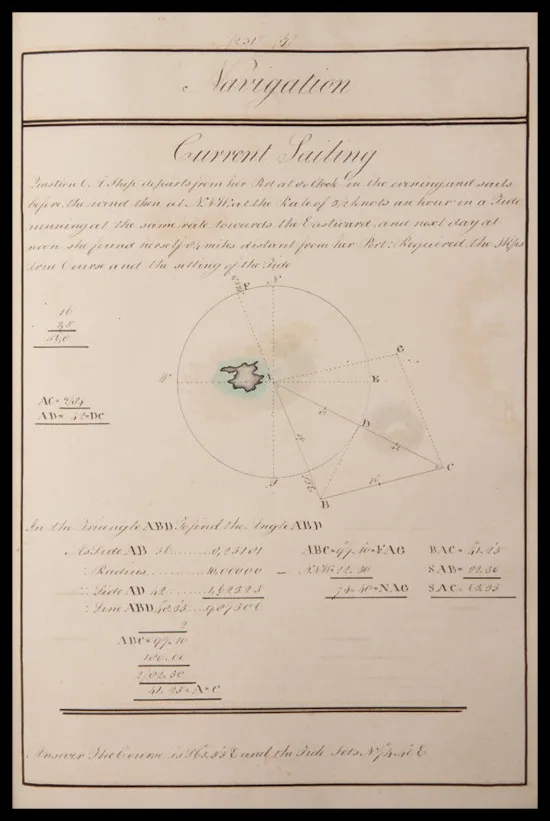 Navigation
Current Sailing
Question 6. A Ship departs from her Port at 8 oClock in the evening and sails
before the wind then at N.N.W. at the Rate of 3½ knots an hour in a Tide
running at the same rate towards the Eastward and next day at
noon she found herself 84 miles distant from her Port: Required the Ships
true Course and the setting of the Tide
F N
16
3,5
56,0
G
W A E
AC = 84
AD = 42 = DC
D
C
S
B
In the Triangle ABD To find the Angle ABD
As Side AB 56
: Radius 10,00000
:: Side AD 42 1,62325
: Sine ABD
ABC = 97.10 = FAG
NNW = 22.30
74.40 = NAG
BAC = 41.25
SAB = 22.30
SAC = 63.55
2
ABC = 97.10
180.00
2)82.50
41.25 = A = C
Answer The Course is S63.55E and the Tide Sets N74.40 E